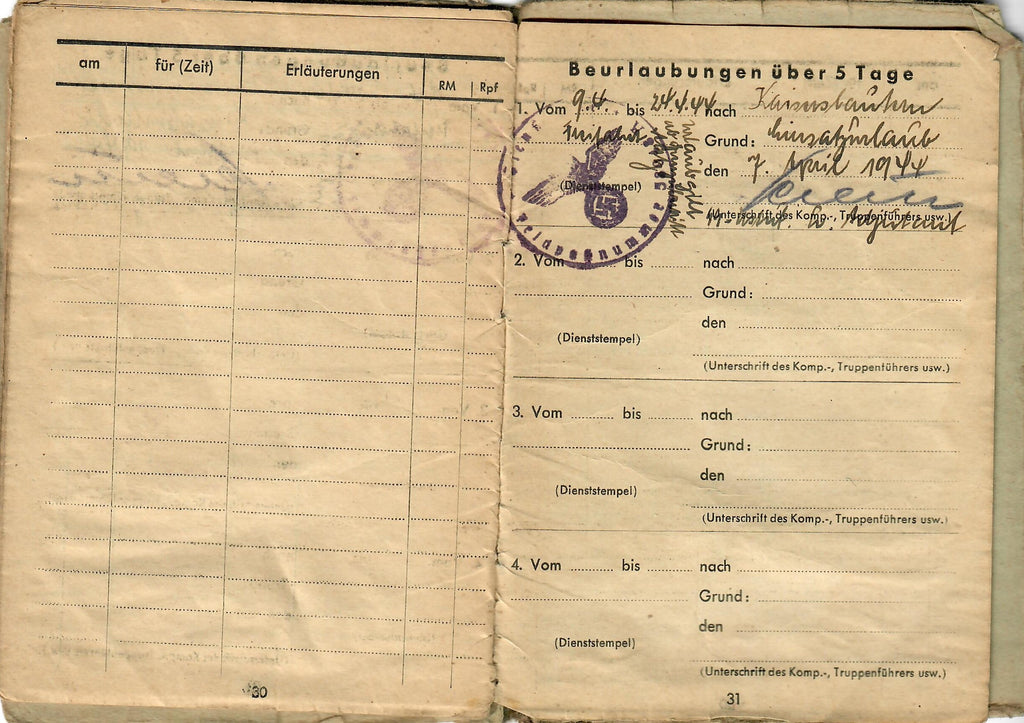 am für (Zeit) Erläuterungen RM Rpf
30
Beurlaubungen über 5 Tage
1. Vom 9.4. bis 24.4.44 nach Kaiserslautern
Grund: Einsatzurlaub
(Dienststempel) den 7. April 1944
(Unterschrift des Komp.-, Truppenführers usw.)
u. Adjutant
Feldpostnummer
2. Vom bis nach
Grund:
den
(Dienststempel)
(Unterschrift des Komp.-, Truppenführers usw.)
3. Vom bis nach
Grund:
den
(Dienststempel)
(Unterschrift des Komp.-, Truppenführers usw.)
4. Vom bis nach
Grund:
den
(Dienststempel)
(Unterschrift des Komp.-, Truppenführers usw.)
31